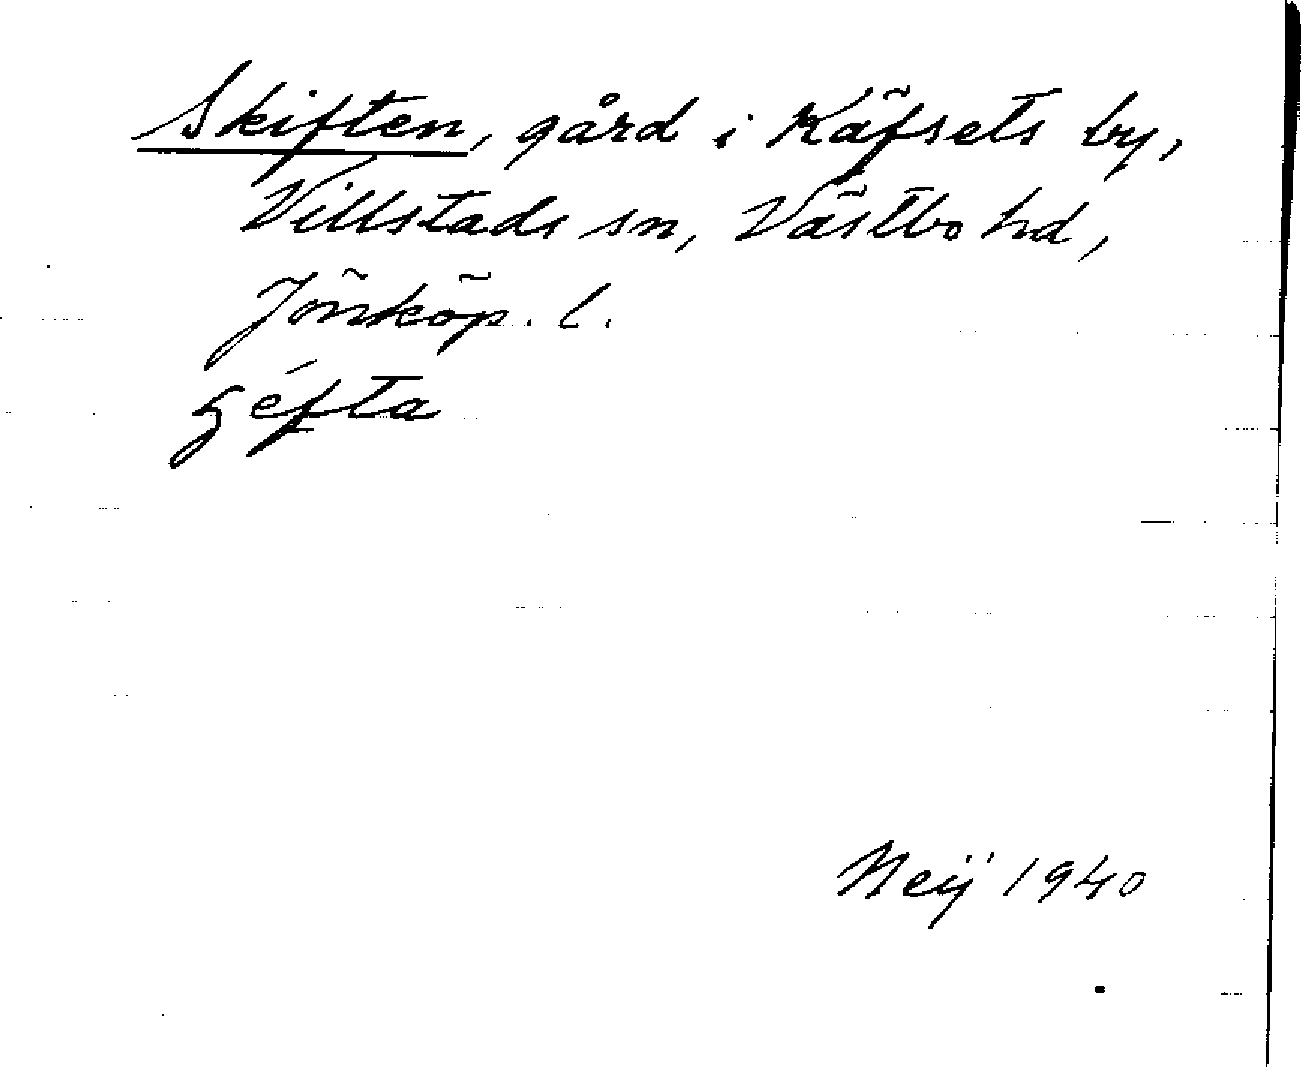 Skiften, gård i Käfsets by,
Villstads sn, Västbo hd,
Jönköp. l.
ʂéfta
Neij 1940